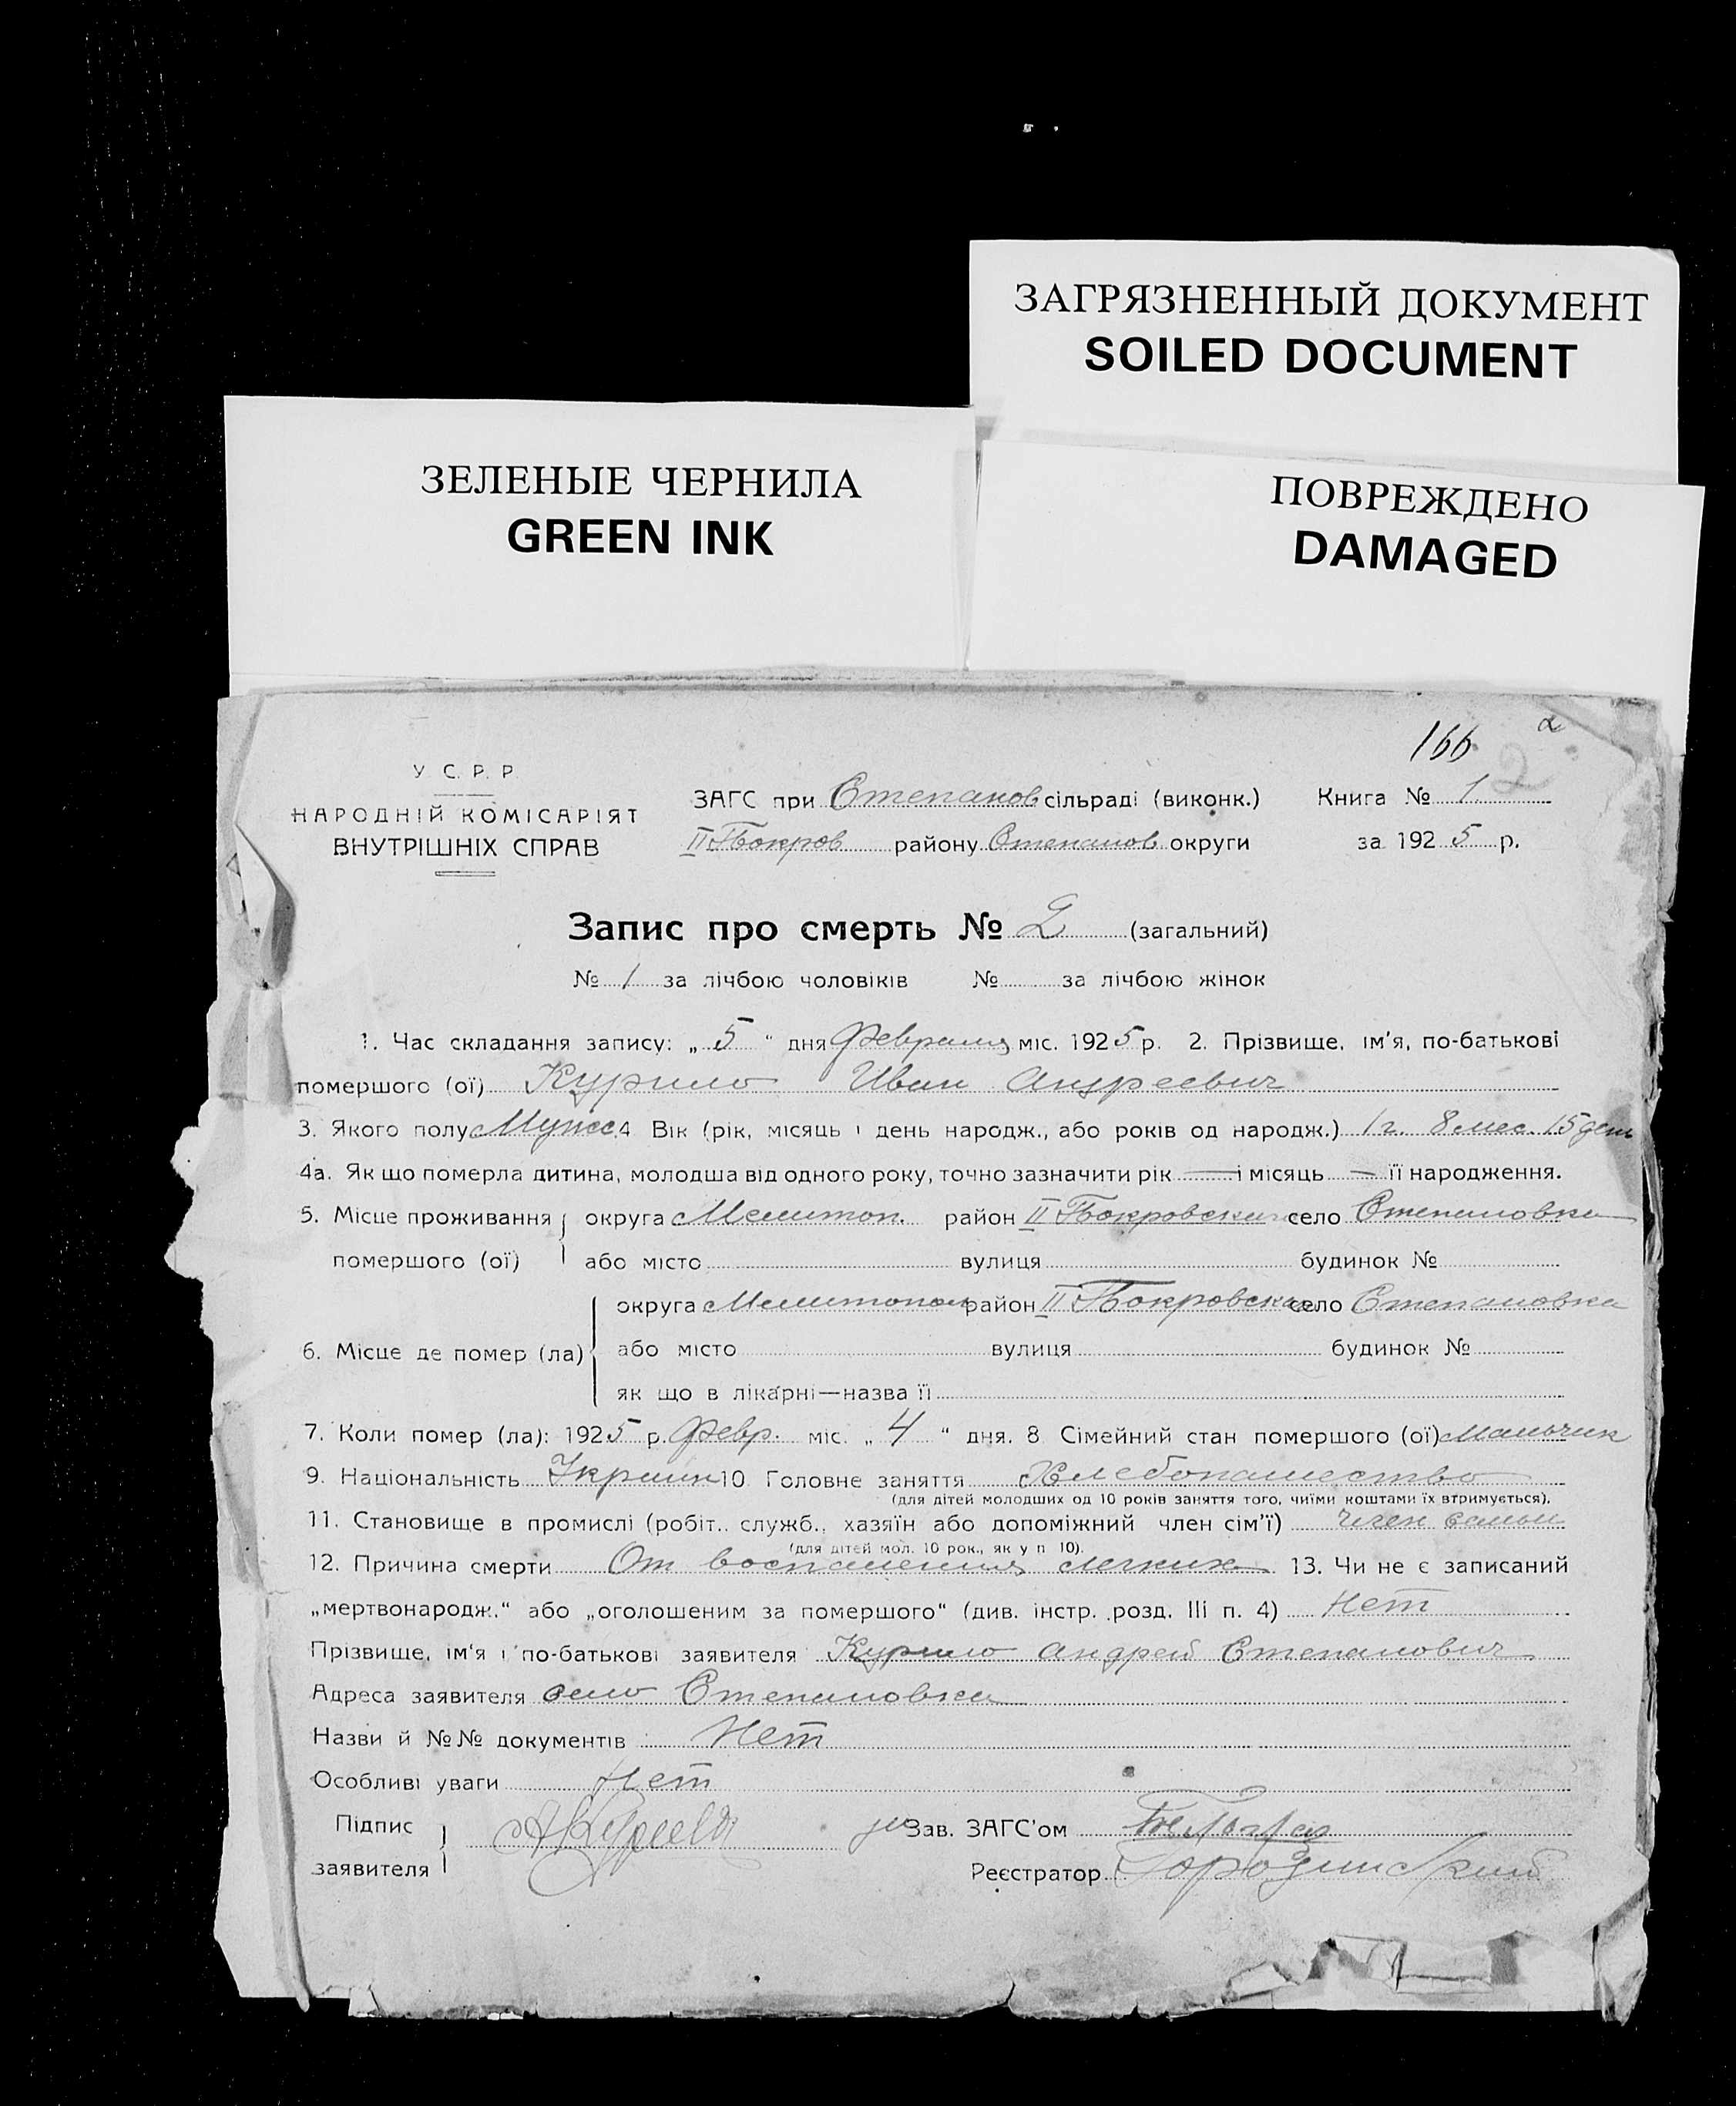 ЗАГРЯЗНЕННЫЙ ДОКУМЕНТ
SOILED DOCUMENT
ЗЕЛЕНЫЕ ЧЕРНИЛА
GREEN INK
ПОВРЕЖДЕНО
DAMAGED
166 2
У С. Р. Р.
НАРОДНІЙ КОМІСАРІЯТ
ВНУТРІШНІХ СПРАВ
ЗАГС при Степанов сільраді (виконк.) Книга № 1
II Покров району Степанов округи за 1925 р.
Запис про смерть № 2 (загальний)
№ 1 за лічбою чоловіків № за лічбою жінок
1. Час складання запису: „5“ дня Февраля міс. 1925 р. 2. Прізвище, ім'я, по-батькові
помершого (ої) Курило Иван Андреевич
3. Якого полу Мужс. 4 Вік (рік, місяць і день народж., або років од народж.) 1 г. 8 мес. 15 день
4а. Як що померла дитина, молодша від одного року, точно зазначити рік — і місяць — її народження.
5. Місце проживання округа Мелитоп. район II Покровский село Степановка
помершого (ої) або місто вулиця будинок №
округа Мелитопол район II Покровский село Степановка
6. Місце де помер (ла) або місто вулиця будинок №
як що в лікарні—назва її
7. Коли помер (ла): 1925 р. Февр. міс. „4“ дня. 8 Сімейний стан помершого (ої) Мальчик
9. Національність Украин 10 Головне заняття Хлебопашество
(для дітей молодших од 10 років заняття того, чиїми коштами їх втримується).
11. Становище в промислі (робіт., служб., хазяїн або допоміжний член сім'ї) Член семьи
(для дітей мол. 10 рок., як у п 10).
12. Причина смерти От воспаления легких 13. Чи не є записаний
„мертвонародж.“ або „оголошеним за помершого“ (див. інстр. розд. III п. 4) Нет
Прізвище, ім'я і по-батькові заявителя Курило Андрей Степанович
Адреса заявителя село Степановка
Назви й №№ документів Нет
Особливі уваги Нет
Підпис Зав. ЗАГС'ом
заявителя Реєстратор